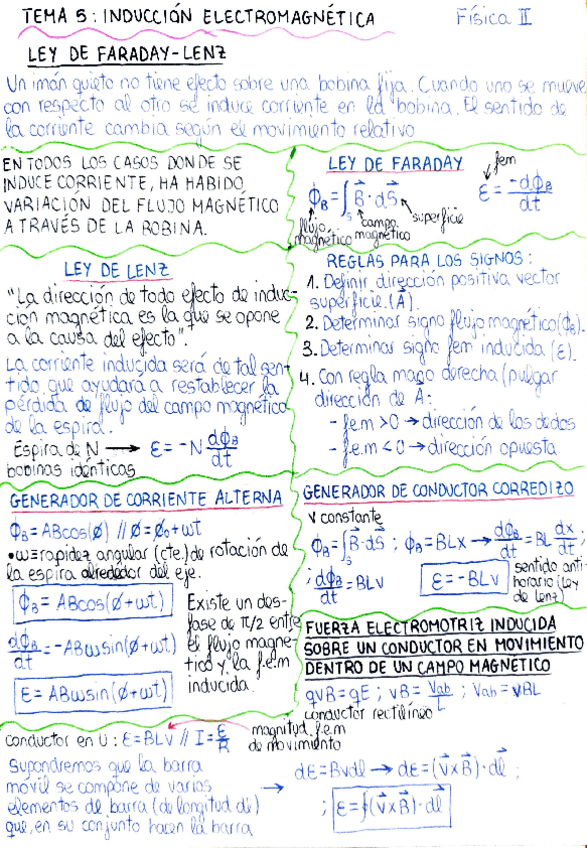 TEMA 5: INDUCCIÓN ELECTROMAGNÉTICA
Física II
LEY DE FARADAY-LENZ
Un imán quieto no tiene efecto sobre una bobina fija. Cuando uno se mueve
con respecto al otro se induce corriente en la bobina. El sentido de
la corriente cambia según el movimiento relativo
EN TODOS LOS CASOS DONDE SE
INDUCE CORRIENTE, HA HABIDO
VARIACIÓN DEL FLUJO MAGNÉTICO
A TRAVÉS DE LA BOBINA.
LEY DE FARADAY
fem
ϕB = ∫s B⃗ · dS⃗
ε = -dϕB/dt
flujo magnético
campo magnético
superficie
LEY DE LENZ
"La dirección de todo efecto de induc-
ción magnética es la que se opone
a la causa del efecto".
La corriente inducida será de tal sen-
tido que ayudará a restablecer la
pérdida de flujo del campo magnético
de la espiral.
Espira de N → ε = -N dϕB/dt
bobinas idénticas
REGLAS PARA LOS SIGNOS:
1. Definir dirección positiva vector
superficie. (A⃗).
2. Determinar signo flujo magnético (ϕB).
3. Determinar signo fem inducida (ε).
4. Con regla mano derecha (pulgar
dirección de A⃗:
- f.em > 0 → dirección de los dedos
- f.e.m < 0 → dirección opuesta
GENERADOR DE CORRIENTE ALTERNA
ϕB = ABcos(Ø) // Ø = Ø0 + ωt
• ω ≡ rapidez angular (cte.) de rotación de
la espira alrededor del eje.
ϕB = ABcos(Ø + ωt)
dϕB/dt = -ABωsin(Ø + ωt)
ε = ABωsin(Ø + ωt)
Existe un des-
fase de π/2 entre
el flujo magné-
tico y la f.e.m
inducida.
GENERADOR DE CONDUCTOR CORREDIZO
v constante
ϕB = ∫s B⃗ · dS⃗ ; ϕB = BLx → dϕB/dt = BL dx/dt ;
; dϕB/dt = BLv
ε = -BLv
sentido anti-
horario (ley
de Lenz)
FUERZA ELECTROMOTRIZ INDUCIDA
SOBRE UN CONDUCTOR EN MOVIMIENTO
DENTRO DE UN CAMPO MAGNÉTICO
qvB = qE ; vB = Vab/L ; Vab = vBL
conductor rectilíneo
conductor en U: ε = BLv // I = ε/R
magnitud f.e.m
de movimiento
Supondremos que la barra
móvil se compone de varios
elementos de barra (de longitud dl)
que, en su conjunto hacen la barra
→ dε = Bvdl → dε = (v⃗ x B⃗) · dl⃗ ;
; ε = ∮(v⃗ x B⃗) · dl⃗